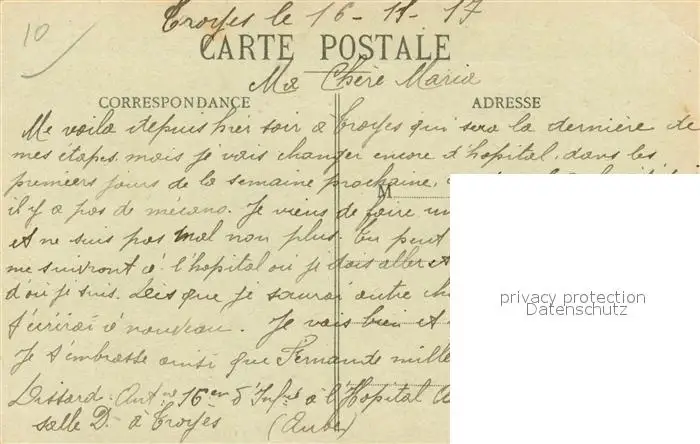 10
Troyes le 16-11-17
CARTE POSTALE
Ma Chère Maria
CORRESPONDANCE
ADRESSE
Me voila depuis hier soir a Troyes qui sera la dernière de
mes étapes. mais je vais changer encore d'hopital. dans les
premiers jours de la semaine prochaine,
M
il y a pas de mécano. Je viens de faire un
et ne suis pas mal non plus. Tu peut
me suivront a l'hopital ou je dois aller et
d'ou je suis. Dès que je saurai autre ch
t'écrirai a nouveau. Je vais bien et
Je t'embrasse ainsi que Fernande mille
Dissard. 16 d'Inf a l'Hopital
salle D. a Troyes (Aube)
privacy protection
Datenschutz